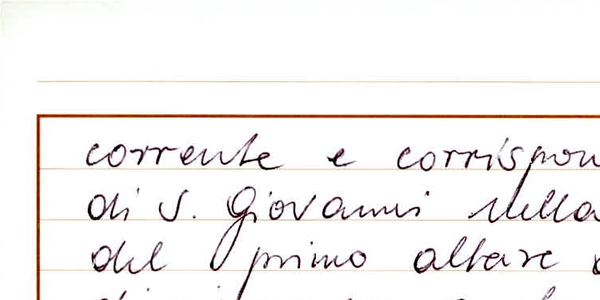 corrente e corrispon
di S. Giovanni nella
del primo altare